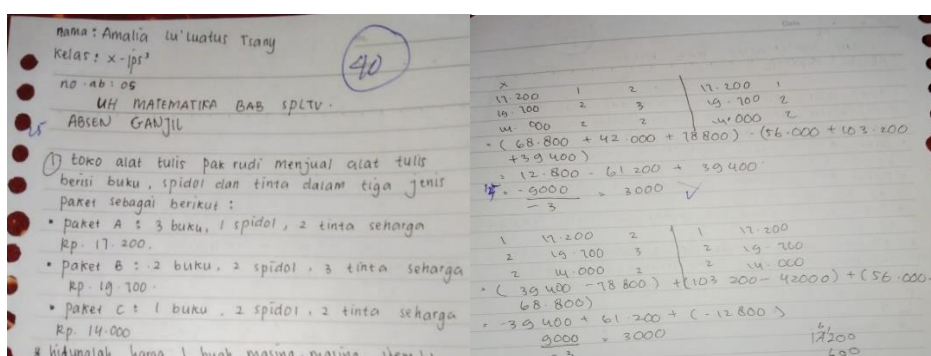 nama : Amalia lu'luatus Tsany
Kelas : x - ips³
no . ab : 05
40
UH MATEMATIKA BAB SPLTV .
ABSEN GANJIL
① toko alat tulis pak rudi menjual alat tulis
berisi buku , spidol dan tinta dalam tiga jenis
paket sebagai berikut :
• paket A : 3 buku, 1 spidol , 2 tinta seharga
Rp. 17.200.
• paket B : 2 buku , 2 spidol , 3 tinta seharga
Rp . 19.700 .
• paket C : 1 buku , 2 spidol , 2 tinta seharga
Rp. 14.000
x
17.200 1 2 17.200 1
19.700 2 3 19.700 2
14.000 2 2 14.000 2
= (68.800 + 42.000 + 78800) - (56.000 + 103.200
+ 39 400)
= 12.800 - 61 200 + 39 400
= -9000 = 3000
-3
1 17.200 2 1 17.200
2 19.700 3 2 19.700
2 14.000 2 2 14.000
(39 400 - 78 800) + (103 200 - 42000) + (56.000-
68.800)
= -39 400 + 61.200 + (-12800)
9000 = 3000
-3
17200